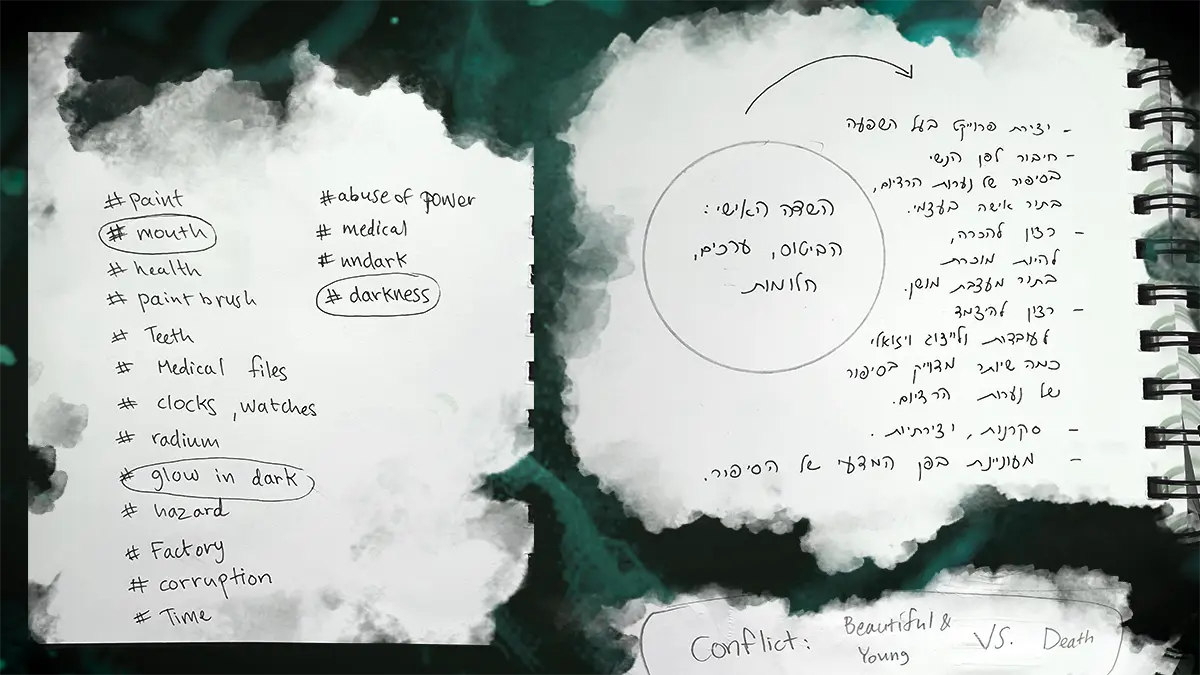 # paint
# mouth
# health
# paint brush
# Teeth
# Medical files
# clocks, watches
# radium
# glow in dark
# hazard
# Factory
# corruption
# Time
# abuse of power
# medical
# undark
# darkness
השדה האישי:
הביטוס, ערכים,
חלומות
- יצירת פרוייקט בעל השפעה
- חיבור לפן הנשי
בסיפור של נערות הרדיום,
בתור אישה בעצמי.
- רצון להכרה,
להיות מוכרת
בתור מעצבת מושן.
- רצון להיצמד
לעובדות ולייצוג ויזואלי
כמה שיותר מדוייק בסיפור
של נערות הרדיום.
- סקרנות, יצירתיות.
- מעוניינת בפן המדעי של הסיפור.
Conflict: Beautiful & Young VS. Death